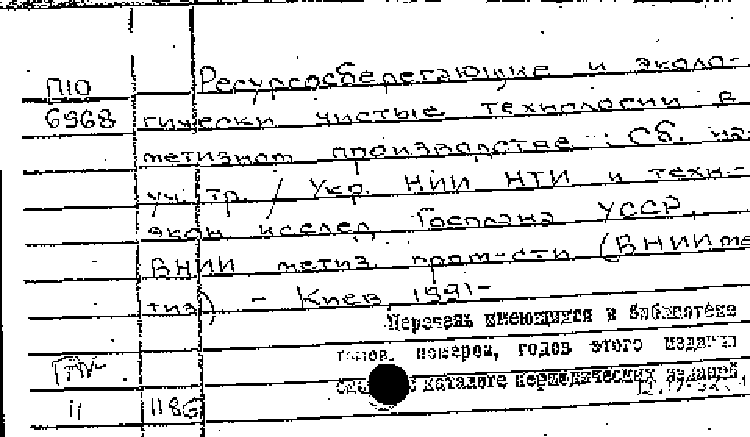 П10 Ресурсосберегающие и эколо-
6968 гически чистые технологии в
метизном производстве : Сб. на-
уч. тр. / Укр. НИИ НТИ и техн.-
экон исслед Госплана УССР,
ВНИИ метиз. пром-сти (ВНИИме
тиз) - Киев, 1991-
Перечень имеющихся в библиотеке
томов, номеров, годов этого издания
каталоге периодических изданий
11 118